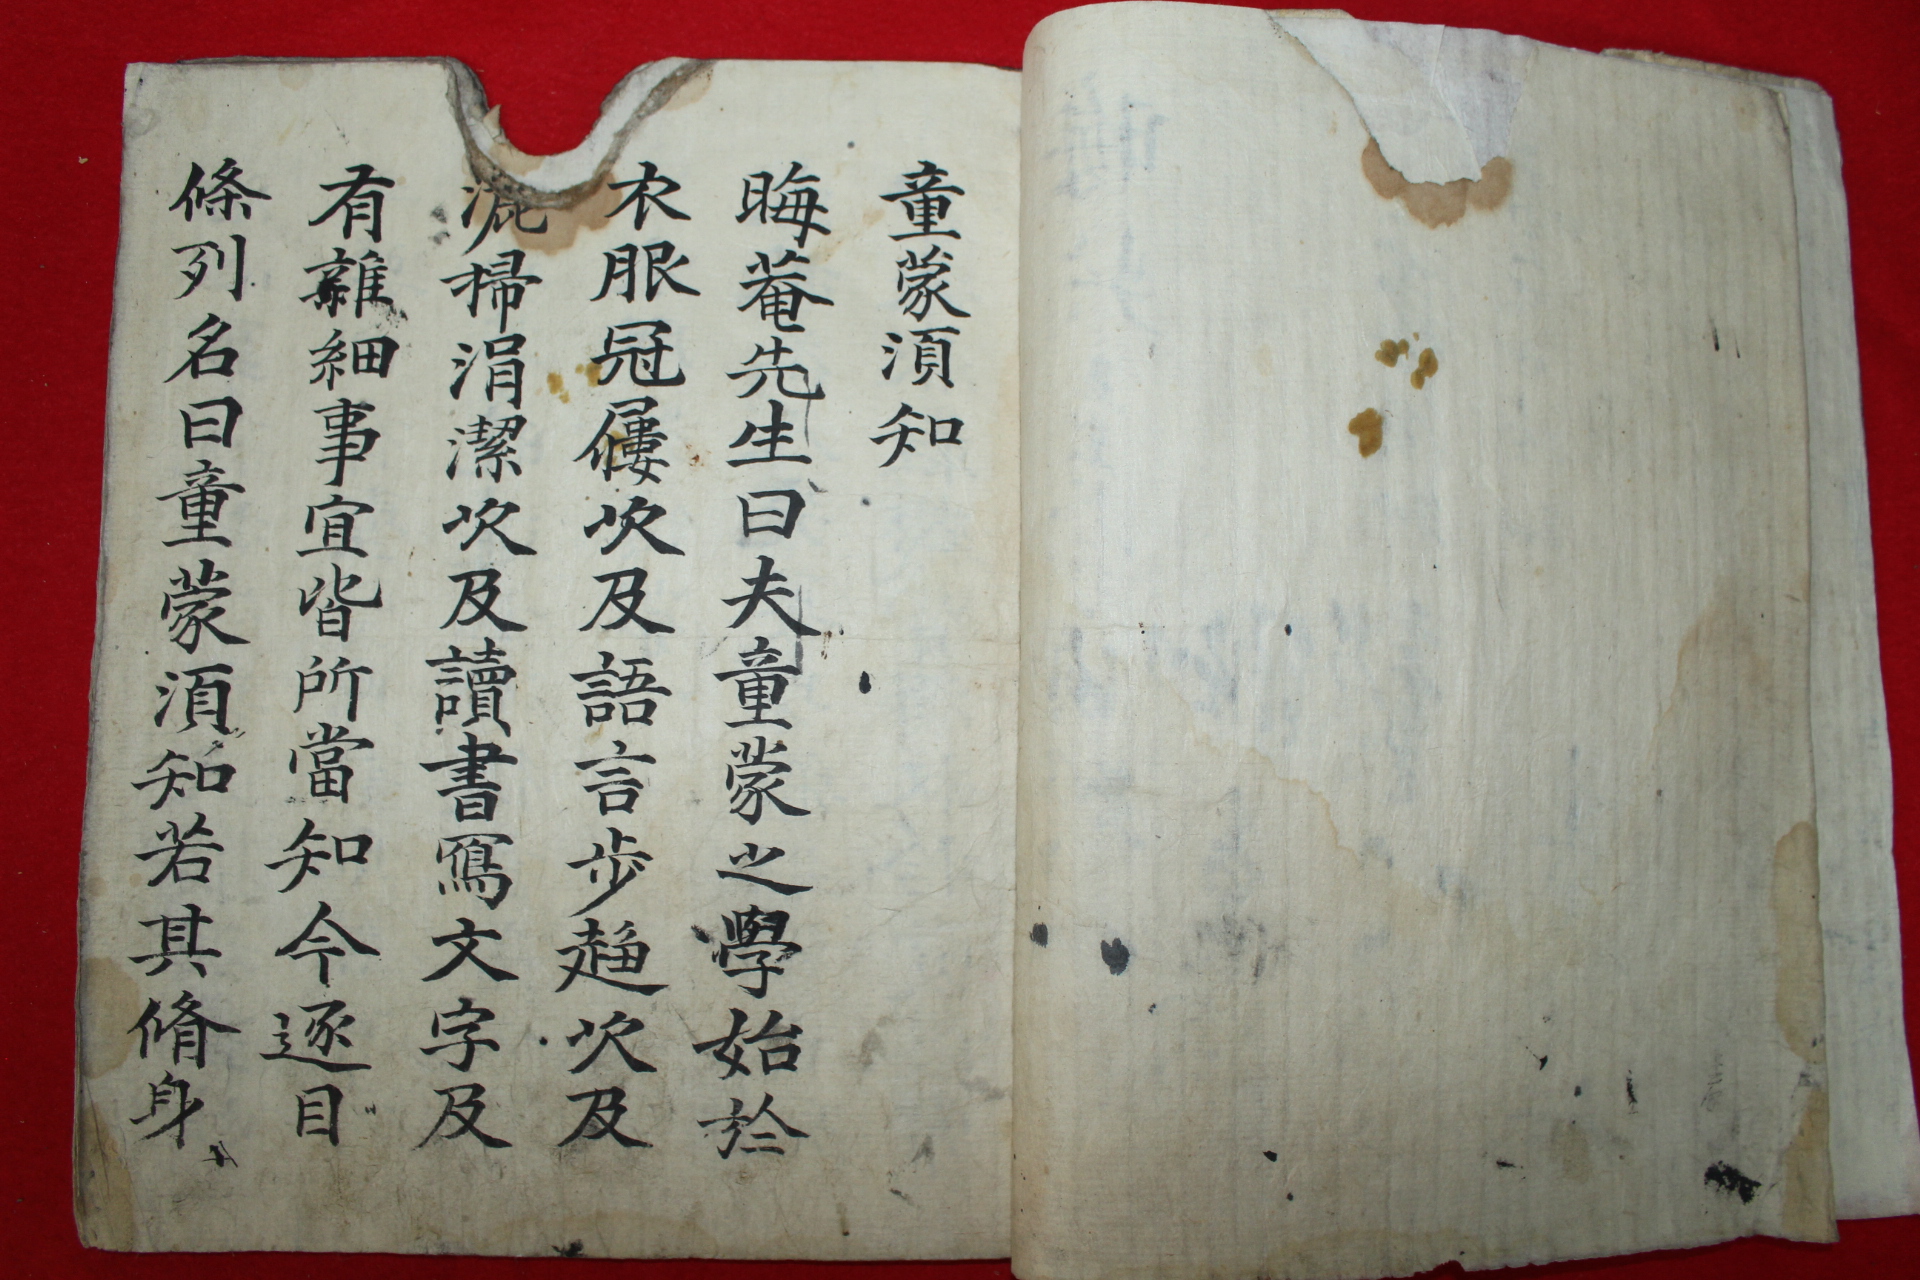 童蒙湏知
晦菴先生曰夫童蒙之學始於
衣服冠屨次及語言步趋次及
灑掃涓潔次及讀書寫文字及
有雜細事宜皆所當知今逐目
條列名曰童蒙湏知若其脩身